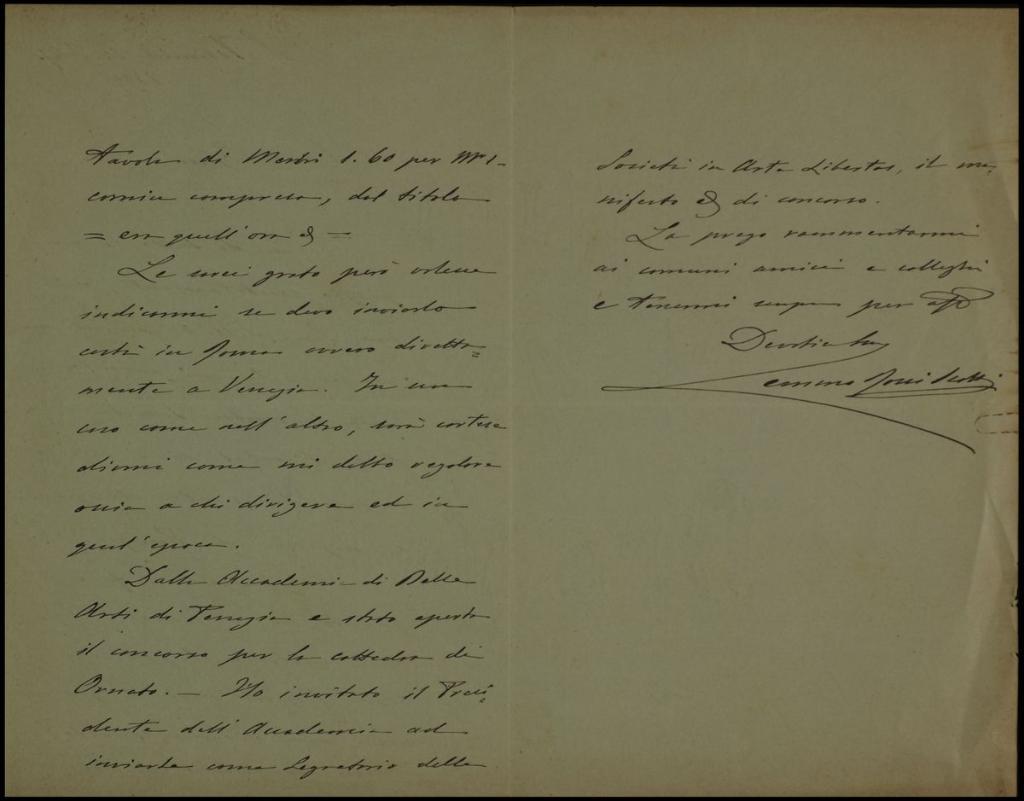 tavola di Metri 1.60 per Mri 1-
cornice compresa, dal titolo
= era quell'ora &. =
Le sarei grato però volesse
indicarmi se devo inviarlo
costì in Roma ovvero diretta=
mente a Venezia. In un
caso come nell'altro, sarà cortese
dirmi come mi debbo regolare
ossia a chi dirigere ed in
qual'epoca.
Dalla Accademia di Belle
Arti di Perugia e stato aperto
il concorso per la cattedra di
Ornato. — Ho invitato il Presi=
dente dell'Accademia ad
inviarle come Segretario della
Società in Arte Libertas, il ma=
nifesto &. di concorso.
La prego rammentarmi
ai comuni amici e colleghi
e tenermi sempre per
Lemmo Rossi Scotti